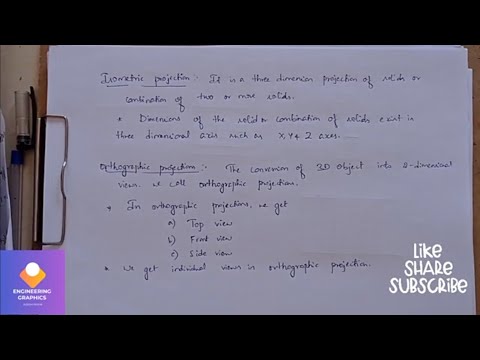 Isometric projection :- It is a three dimension projection of solids or
combination of two or more solids.
* Dimensions of the solid or combination of solids exist in
three dimensional axis such as X, Y & Z axes.
Orthographic projection :- The conversion of 3D object into 2-dimensional
views. we call orthographic projections.
* In orthographic projections, we get
a) Top view
b) Front view
c) Side view
* We get individual views in orthographic projection.
LIKE
SHARE
SUBSCRIBE
ENGINEERING
GRAPHICS